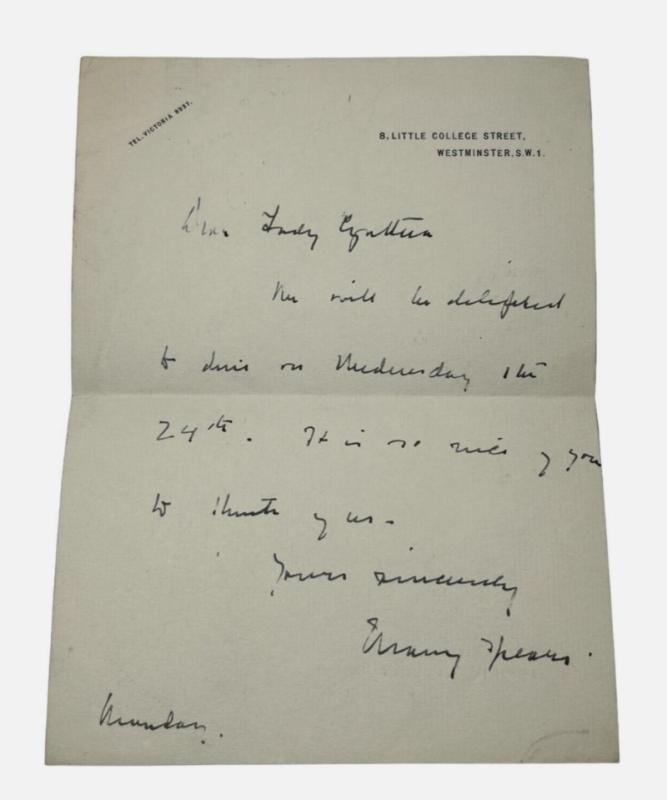 TEL. VICTORIA 8937.
8, LITTLE COLLEGE STREET,
WESTMINSTER, S.W.1.
Dear Lady Cynthia
We will be delighted
to dine on Wednesday the
24th. It is so nice of you
to think of us.
Yours sincerely
Mary Spears.
Monday.